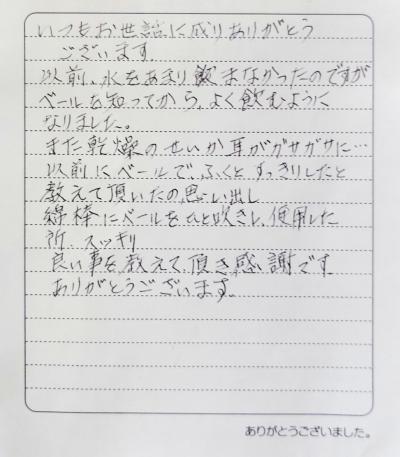 いつもお世話に成りありがとう
ございます。
以前、水をあまり飲まなかったのですが
ベールを知ってから、よく飲むように
なりました。
また乾燥のせいか耳がガサガサに…
以前にベールで、ふくとすっきりしたと
教えて頂いたの思い出し
綿棒にベールをひと吹きし、使用した
所、スッキリ
良い事を教えて頂き感謝です
ありがとうございます。
ありがとうございました。